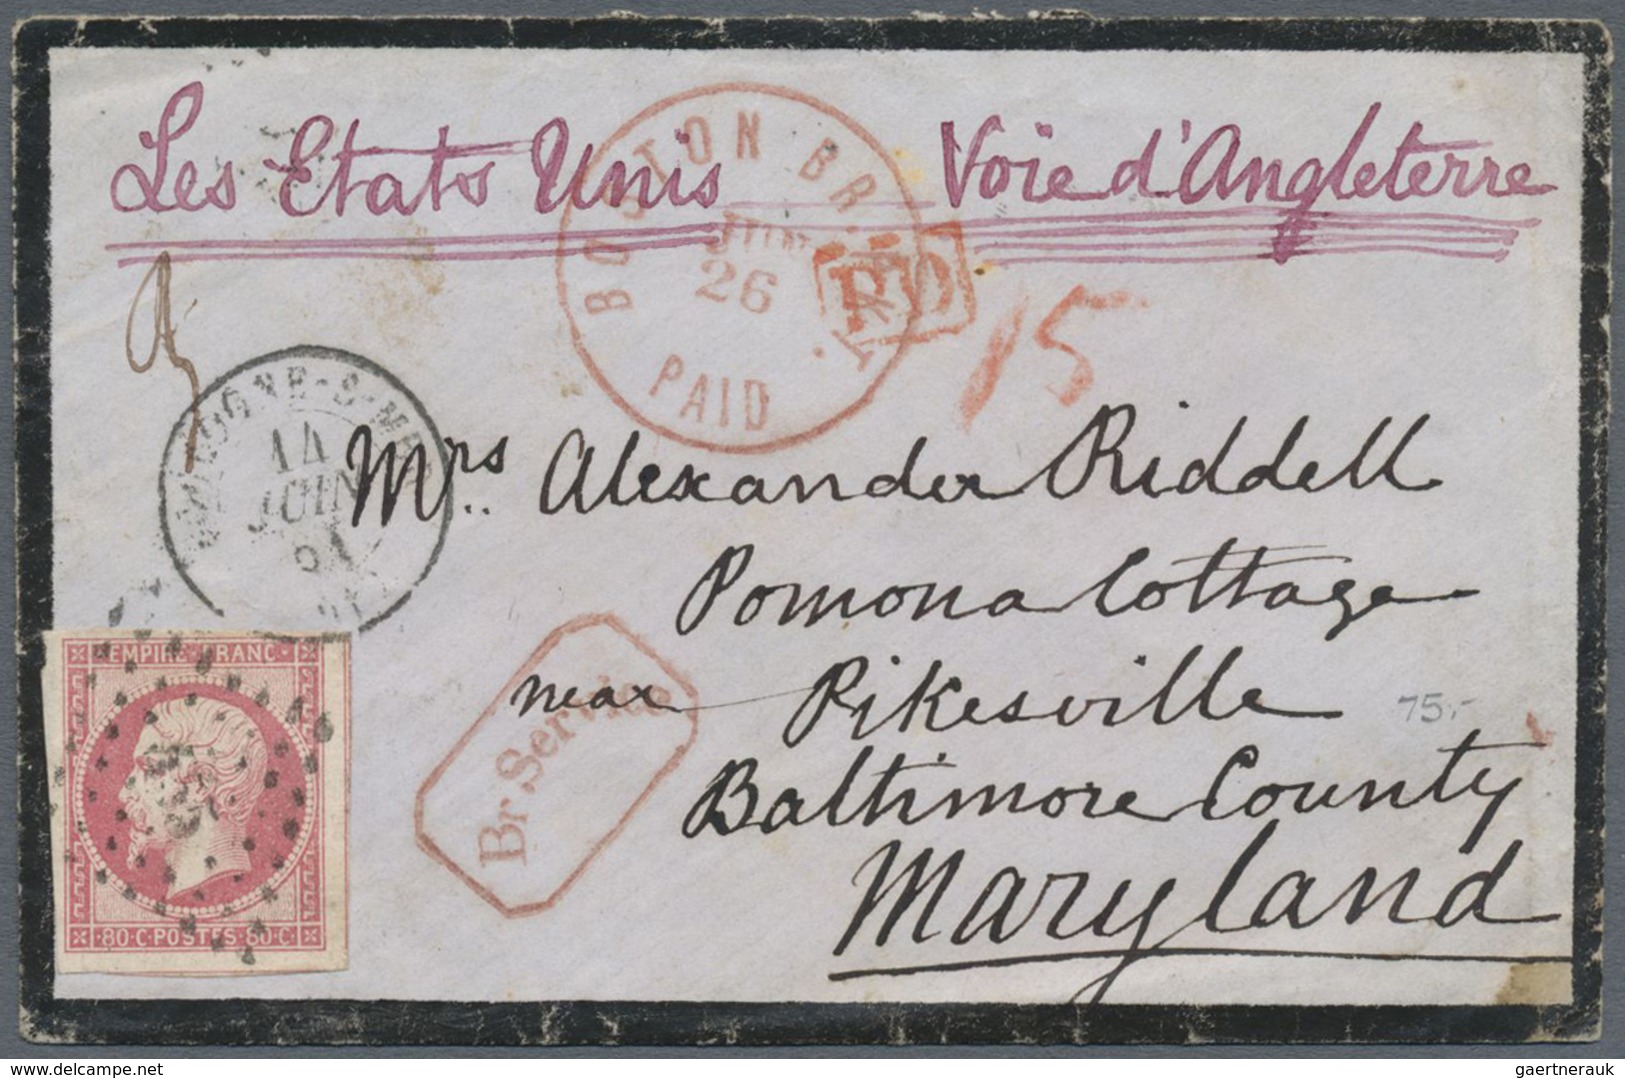 Les Etats Unis Voie d'Angleterre
BOSTON BR. PKT.
JUN
26
PAID
PD
15
BOULOGNE-S-MER
14
JUIN
61
Mrs. Alexander Riddell
Pomona Cottage
near Pikesville
75,-
Baltimore County
Maryland
Br Service
EMPIRE FRANC
80·C·POSTES·80·C
gaertnerauk